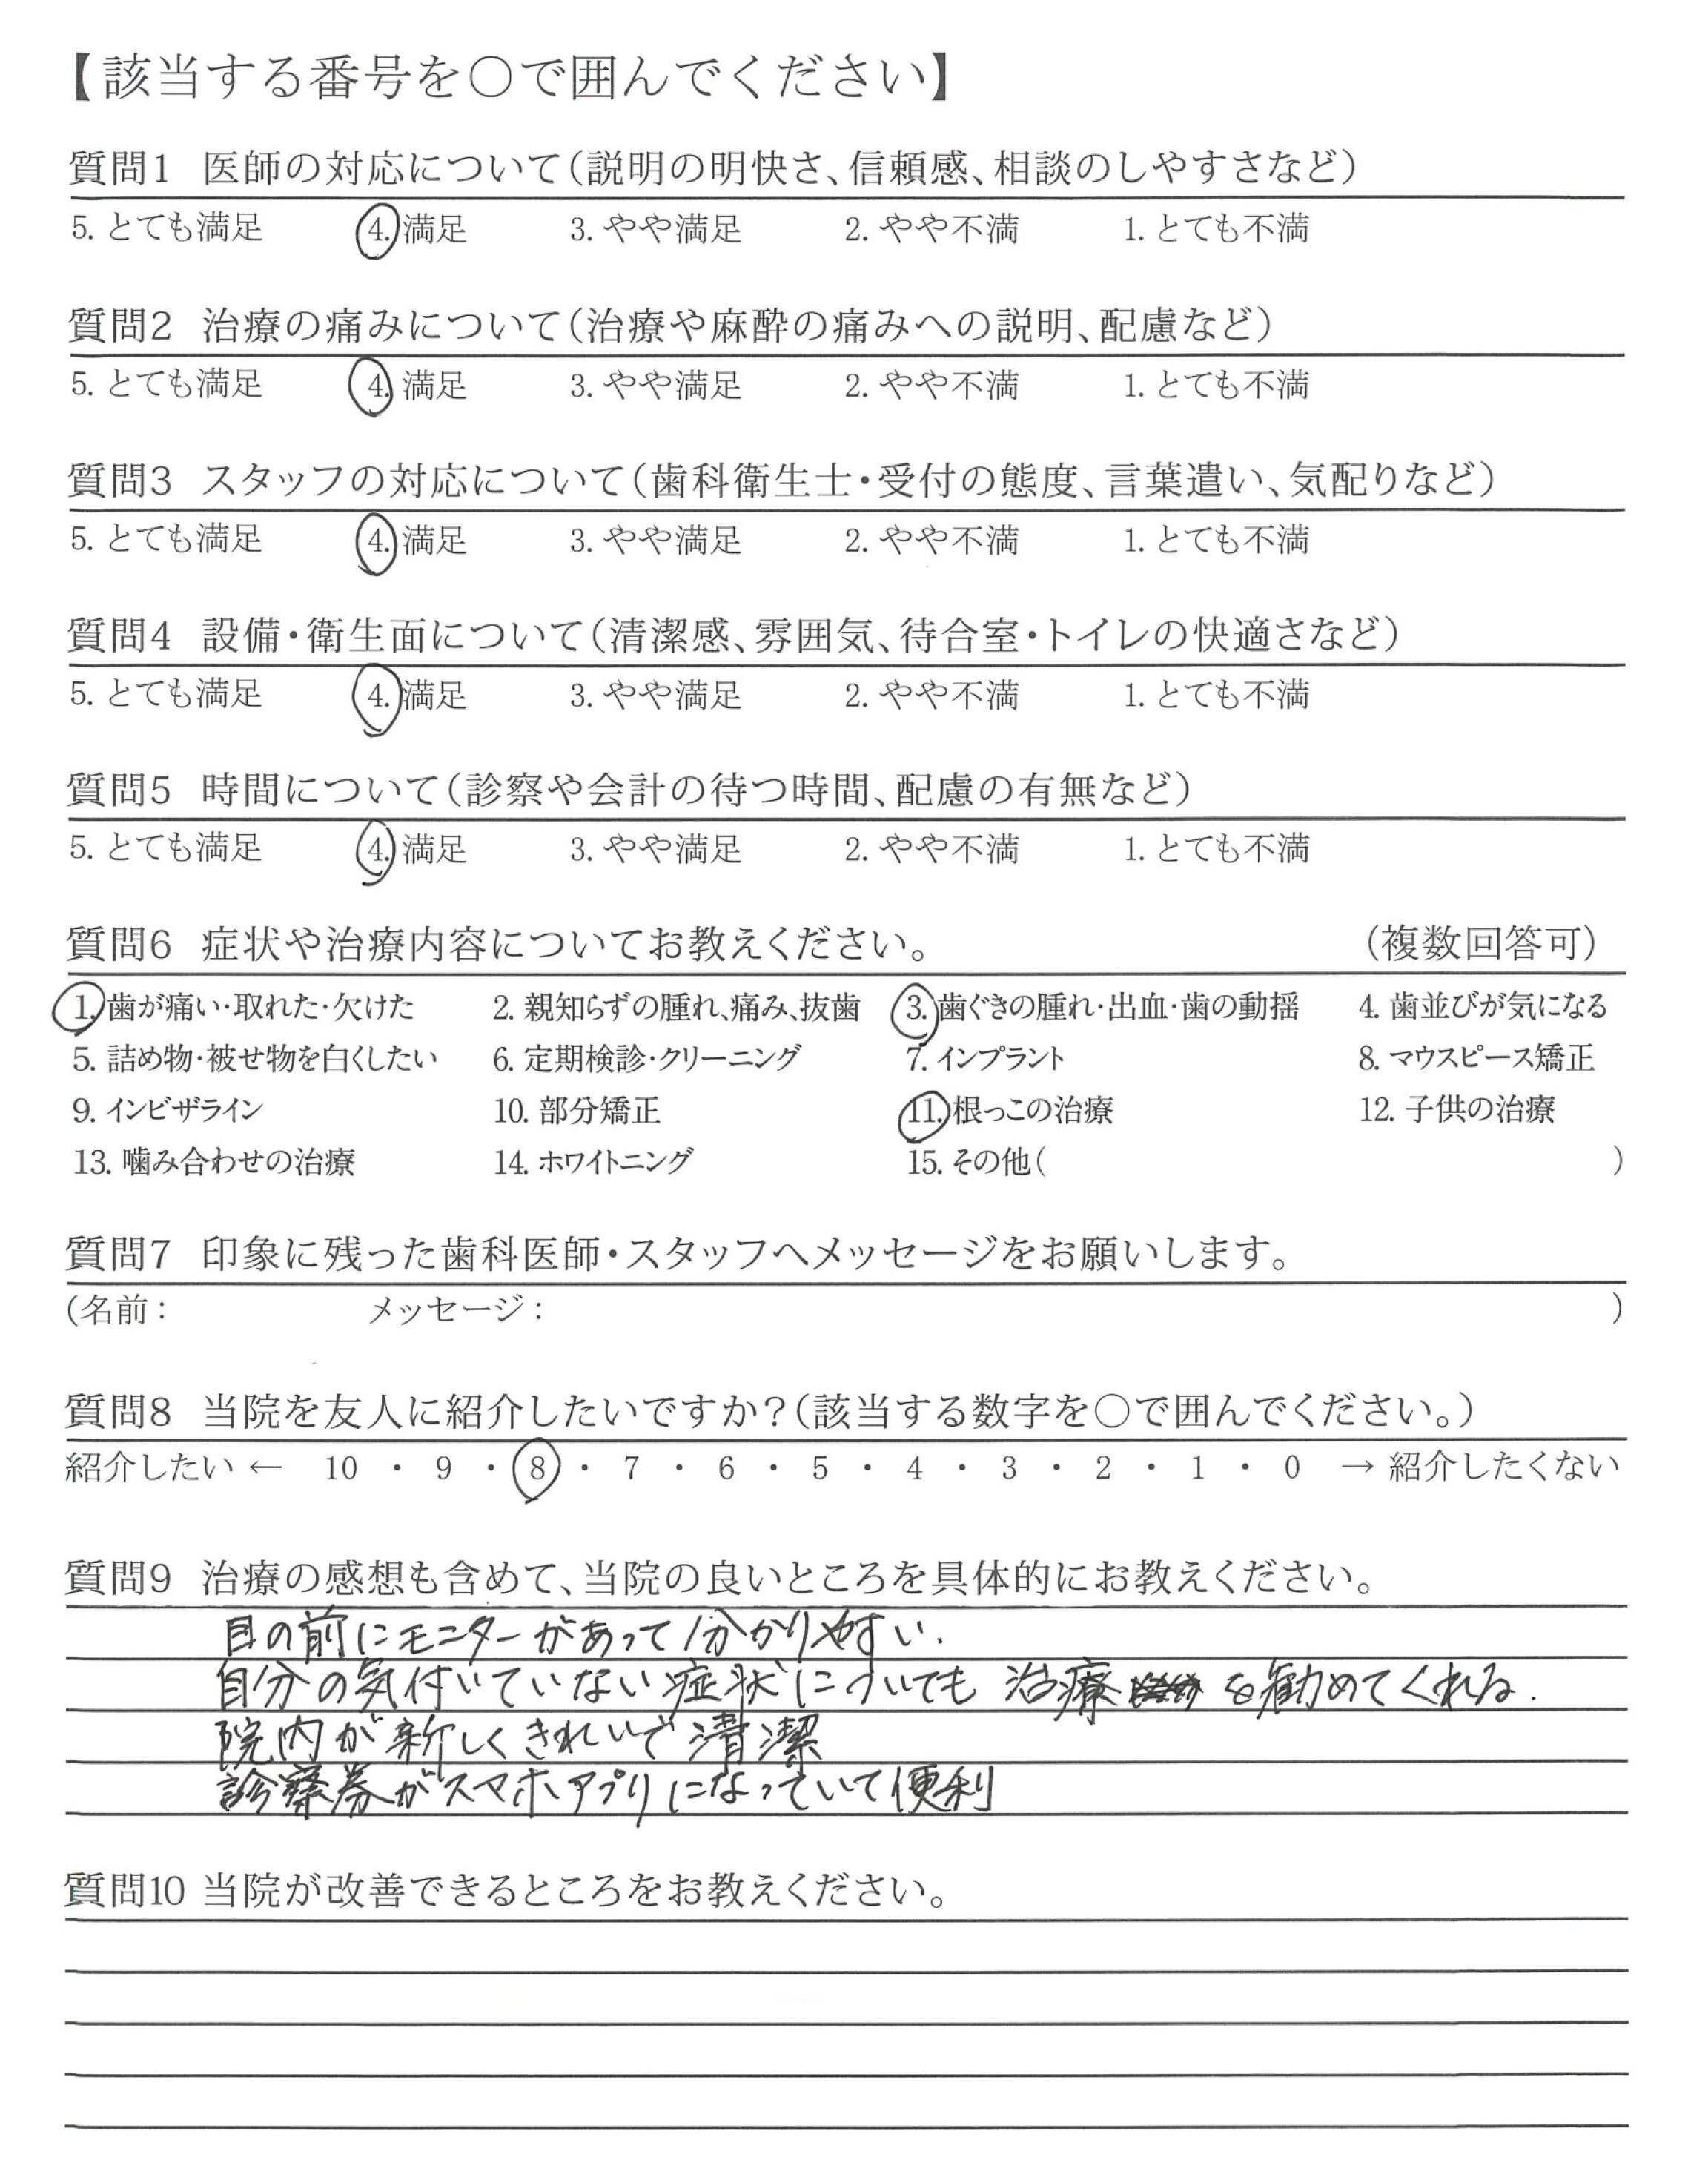 【該当する番号を○で囲んでください】
質問1 医師の対応について(説明の明快さ、信頼感、相談のしやすさなど)
5. とても満足 4. 満足 3. やや満足 2. やや不満 1. とても不満
質問2 治療の痛みについて(治療や麻酔の痛みへの説明、配慮など)
5. とても満足 4. 満足 3. やや満足 2. やや不満 1. とても不満
質問3 スタッフの対応について(歯科衛生士・受付の態度、言葉遣い、気配りなど)
5. とても満足 4. 満足 3. やや満足 2. やや不満 1. とても不満
質問4 設備・衛生面について(清潔感、雰囲気、待合室・トイレの快適さなど)
5. とても満足 4. 満足 3. やや満足 2. やや不満 1. とても不満
質問5 時間について(診察や会計の待つ時間、配慮の有無など)
5. とても満足 4. 満足 3. やや満足 2. やや不満 1. とても不満
質問6 症状や治療内容についてお教えください。 (複数回答可)
1. 歯が痛い・取れた・欠けた 2. 親知らずの腫れ、痛み、抜歯 3. 歯ぐきの腫れ・出血・歯の動揺 4. 歯並びが気になる
5. 詰め物・被せ物を白くしたい 6. 定期検診・クリーニング 7. インプラント 8. マウスピース矯正
9. インビザライン 10. 部分矯正 11. 根っこの治療 12. 子供の治療
13. 噛み合わせの治療 14. ホワイトニング 15. その他( )
質問7 印象に残った歯科医師・スタッフへメッセージをお願いします。
(名前: メッセージ: )
質問8 当院を友人に紹介したいですか?(該当する数字を○で囲んでください。)
紹介したい ← 10 ・ 9 ・ 8 ・ 7 ・ 6 ・ 5 ・ 4 ・ 3 ・ 2 ・ 1 ・ 0 → 紹介したくない
質問9 治療の感想も含めて、当院の良いところを具体的にお教えください。
目の前にモニターがあって分かりやすい.
自分の気付いていない症状についても 治療を勧めてくれる.
院内が新しくきれいで清潔
診察券がスマホアプリになっていて便利
質問10 当院が改善できるところをお教えください。